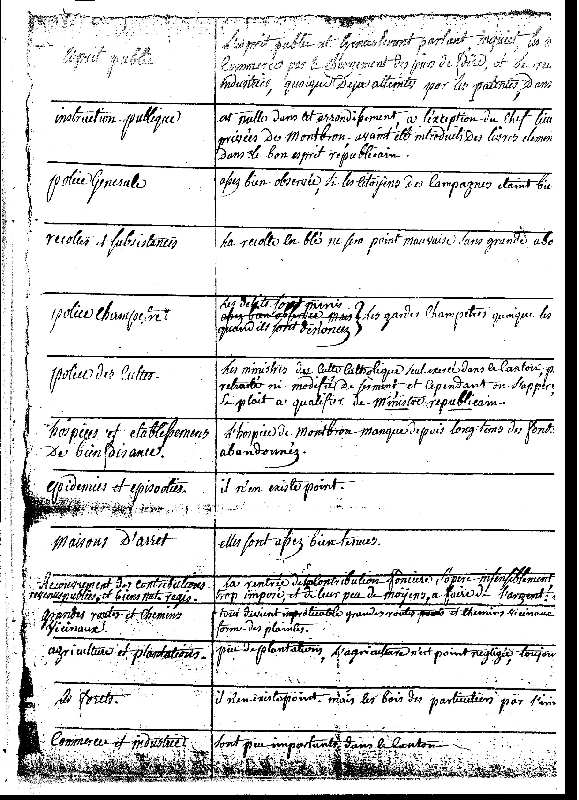 Esprit public
L'esprit public est
Commerces par le
industries, quoique Deja atteints par les patentes, Dans
instruction publique
est nulle dans cet arrondissement, a l'exception du Chef lieu
privées des Montbron ayant été introduit Des livres elemen
Dans le bon esprit républicain.
police Generale
assez bien observée, si les Citoyens des Campagnes etaint bie
recoltes et subsistances
La recolte en blé ne sera point mauvaise sans grande abo
police Champetre
Les delits sont punis
quand ils sont dénoncez
Les gardes Champetres quoique les
police des Cultes
Les ministres du Culte Catholique seul exercé dans le Canton, p
retracté ni modifié de serment et cependant on s'apper
se plait a qualifier de Ministre republicain.
hospices et etablissemens
De bienfaisance.
L'hospice de Montbron manque depuis longtems des fonds
abandonnéz.
epidemies et episooties.
il n'en existe point.
maisons D'arret
elles sont assez bien tenues.
Recouvrement des contributions
revenus publics, et biens nat. regis.
La rentrée des Contribution fonciere s'opere insensiblement
trop imposé, et de leur peu de moyens, a faire de l'argent,
grandes routes et chemins
vicinaux.
tout devient impraticable grandes routes et chemins vicinaux
forme des plaintes.
agriculture et plantations.
peu de plantations, L'agriculture n'est point negligée, toujou
les forets.
il n'en existe point. mais les bois des particuliers par l'im
Commerce et industrie
sont peu importants dans le Canton